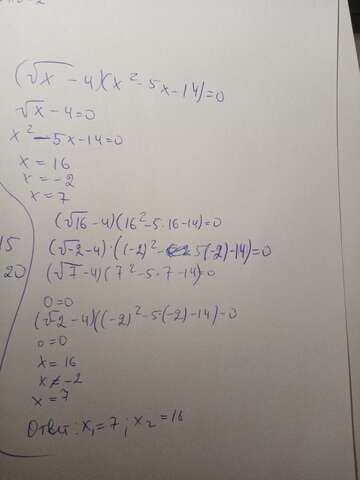 (√x - 4)(x² - 5x - 14) = 0
√x - 4 = 0
x² - 5x - 14 = 0
x = 16
x = -2
x = 7
(√16 - 4)(16² - 5·16 - 14) = 0
15
(√-2 - 4)·((-2)² - 5(-2) - 14) = 0
20
(√7 - 4)(7² - 5·7 - 14) = 0
0 = 0
(√-2 - 4)((-2)² - 5(-2) - 14) - 0
0 = 0
x = 16
x ≠ -2
x = 7
Ответ: x₁ = 7; x₂ = 16